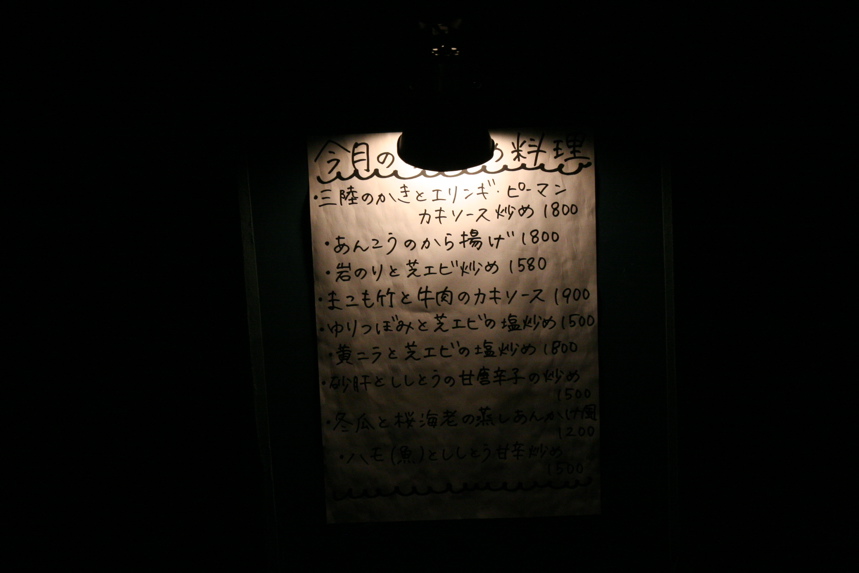 今月の め料理
・三陸のかきとエリンギ・ピーマン
カキソース炒め 1800
・あんこうのから揚げ 1800
・岩のりと芝エビ炒め 1580
・まこも竹と牛肉のカキソース 1900
・ゆりつぼみと芝エビの塩炒め 1500
・黄ニラと芝エビの塩炒め 1800
・砂肝とししとうの甘唐辛子の炒め
1500
・冬瓜と桜海老の蒸しあんかけ風
1200
・ハモ(魚)とししとう甘辛炒め
1500